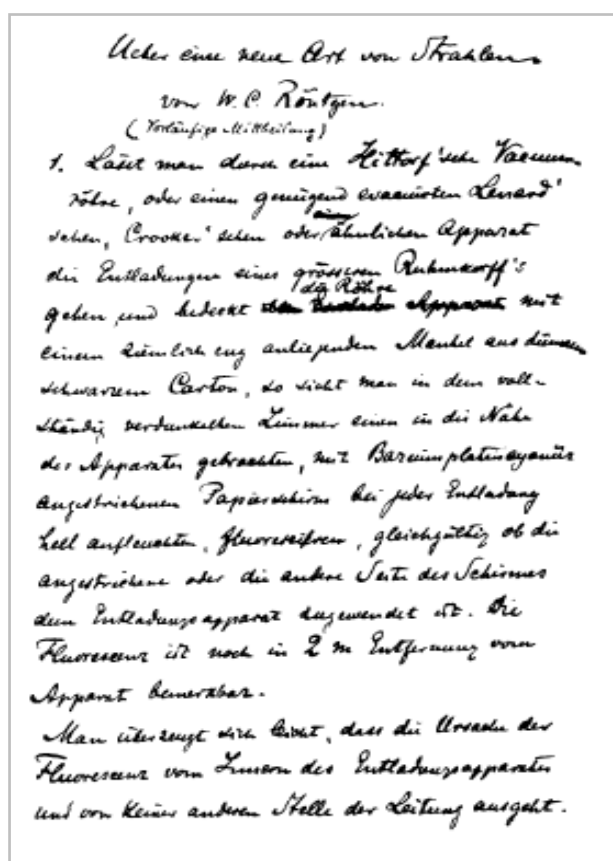 Ueber eine neue Art von Strahlen
von W. C. Röntgen.
(Vorläufige Mittheilung)
1. Lässt man durch eine Hittorf'sche Vacuum-
röhre, oder einen genügend evacuirten Lenard'
schen, Crookes'schen oder ähnlichen Apparat
die Entladungen eines grösseren Ruhmkorff's
gehen und bedeckt die Röhre mit
einem ziemlich eng anliegenden Mantel aus dünnem
schwarzem Carton, so sieht man in dem voll-
ständig verdunkelten Zimmer einen in die Nähe
des Apparates gebrachten, mit Bariumplatincyanür
angestrichenen Papierschirm bei jeder Entladung
hell aufleuchten, fluoresciren, gleichgültig ob die
angestrichene oder die andere Seite des Schirmes
dem Entladungsapparat zugewendet ist. Die
Fluorescenz ist noch in 2 m Entfernung vom
Apparat bemerkbar.
Man überzeugt sich leicht, dass die Ursache der
Fluorescenz vom Innern des Entladungsapparates
und von keiner anderen Stelle der Leitung ausgeht.